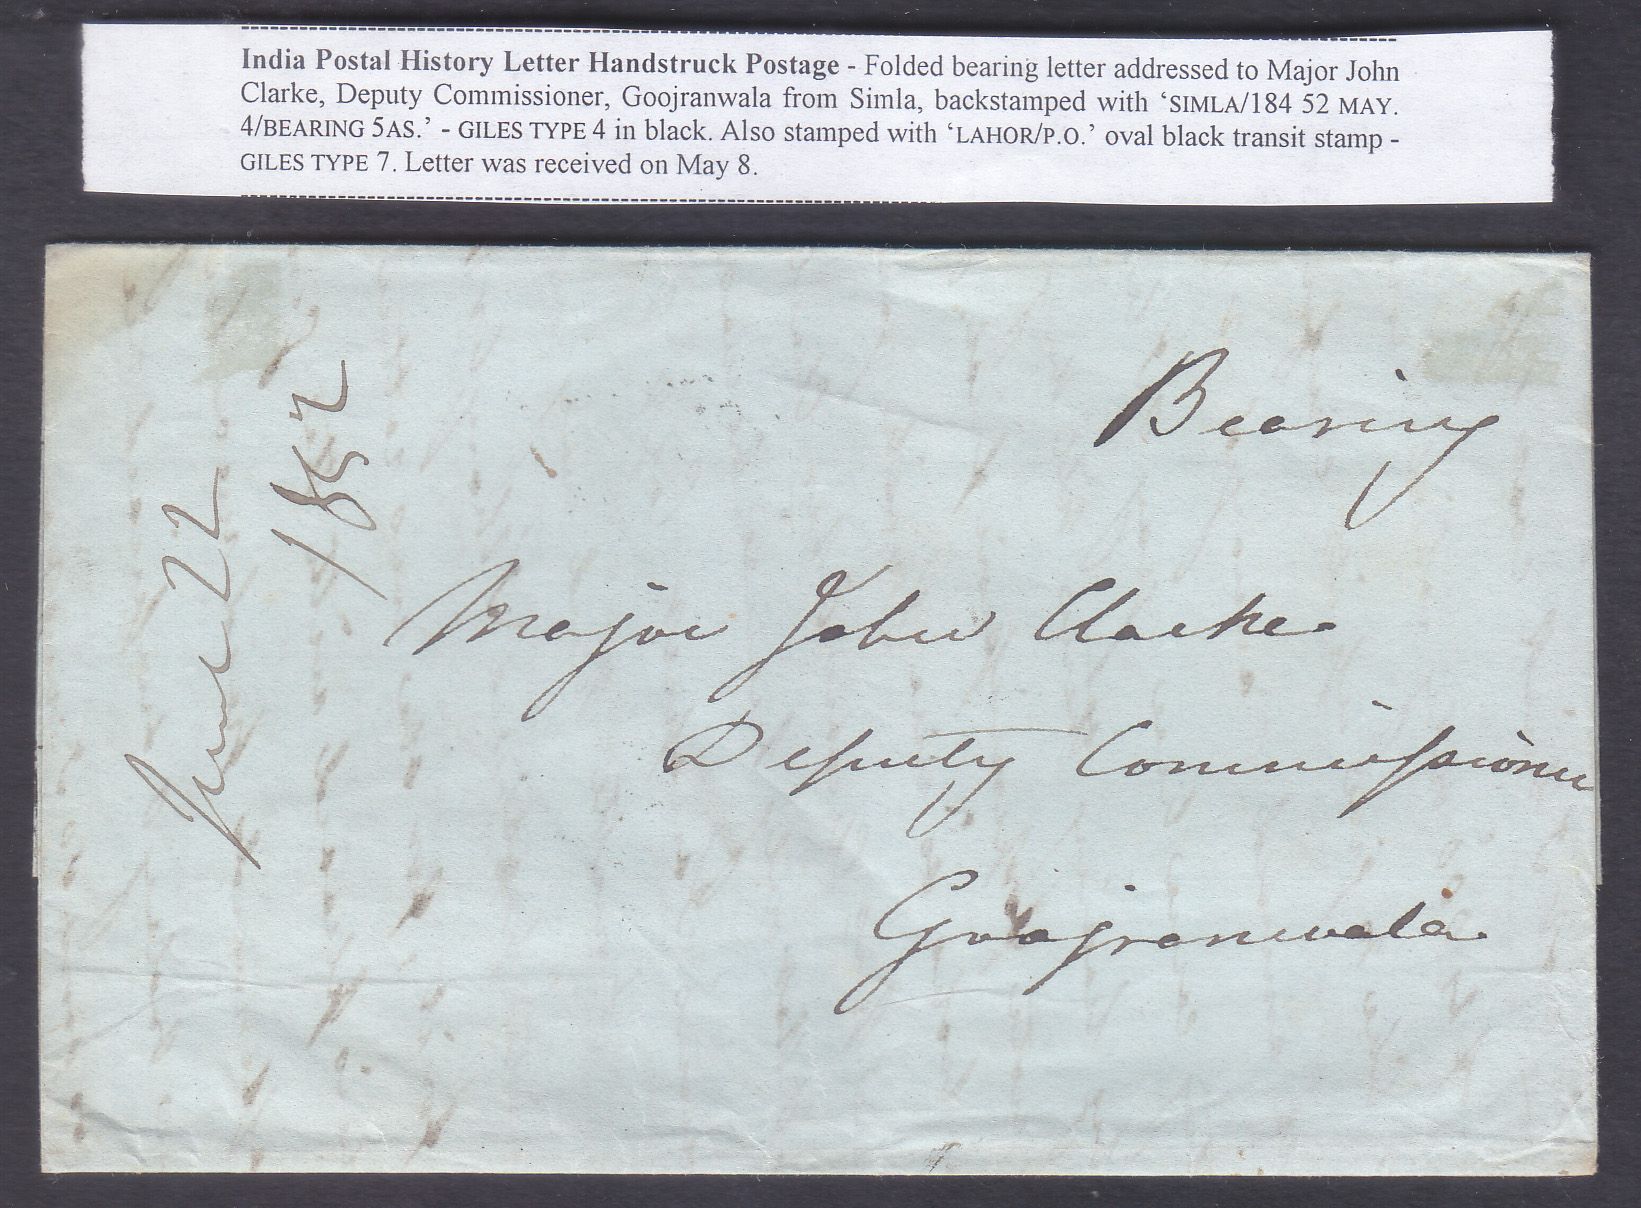 India Postal History Letter Handstruck Postage - Folded bearing letter addressed to Major John
Clarke, Deputy Commissioner, Goojranwala from Simla, backstamped with ‘SIMLA/184 52 MAY.
4/BEARING 5AS.’ - GILES TYPE 4 in black. Also stamped with ‘LAHOR/P.O.’ oval black transit stamp -
GILES TYPE 7. Letter was received on May 8.
Bearing
Major John Clarke
Deputy Commissioner
Goojranwala
June 22
1852